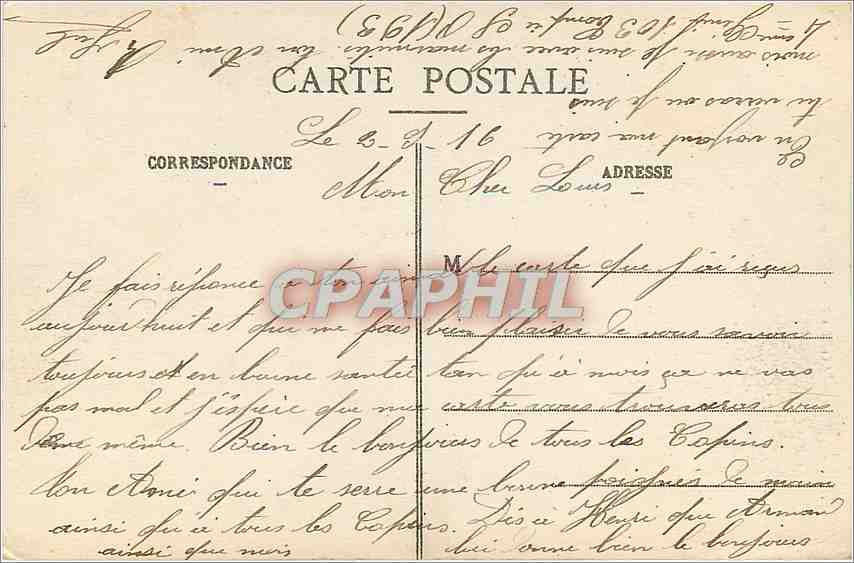 CARTE POSTALE
Le 2-9-16
CORRESPONDANCE
ADRESSE
Mon Cher Louis
Je fais réponce a ton aimable carte que j'ai reçus
M
CPAPHIL
aujourd'huit et qui me fais bien plaisir de vous savoir
toujours en bonne santée tan qu'à mois ça ne vas
pas mal et j'éspère que ma carte vous trouveras tous
de même. Bien le bonjours de tous les Copins.
Ton Ami qui te serre une bonne poignés de main
ainsi qu'à tous les Copins. Dis à Henri que Armand
ainsi que mois
lui donne bien le bonjours
En voyant ma carte
tu verras ou je suis
mois aussi je suis avec les
103
(193)